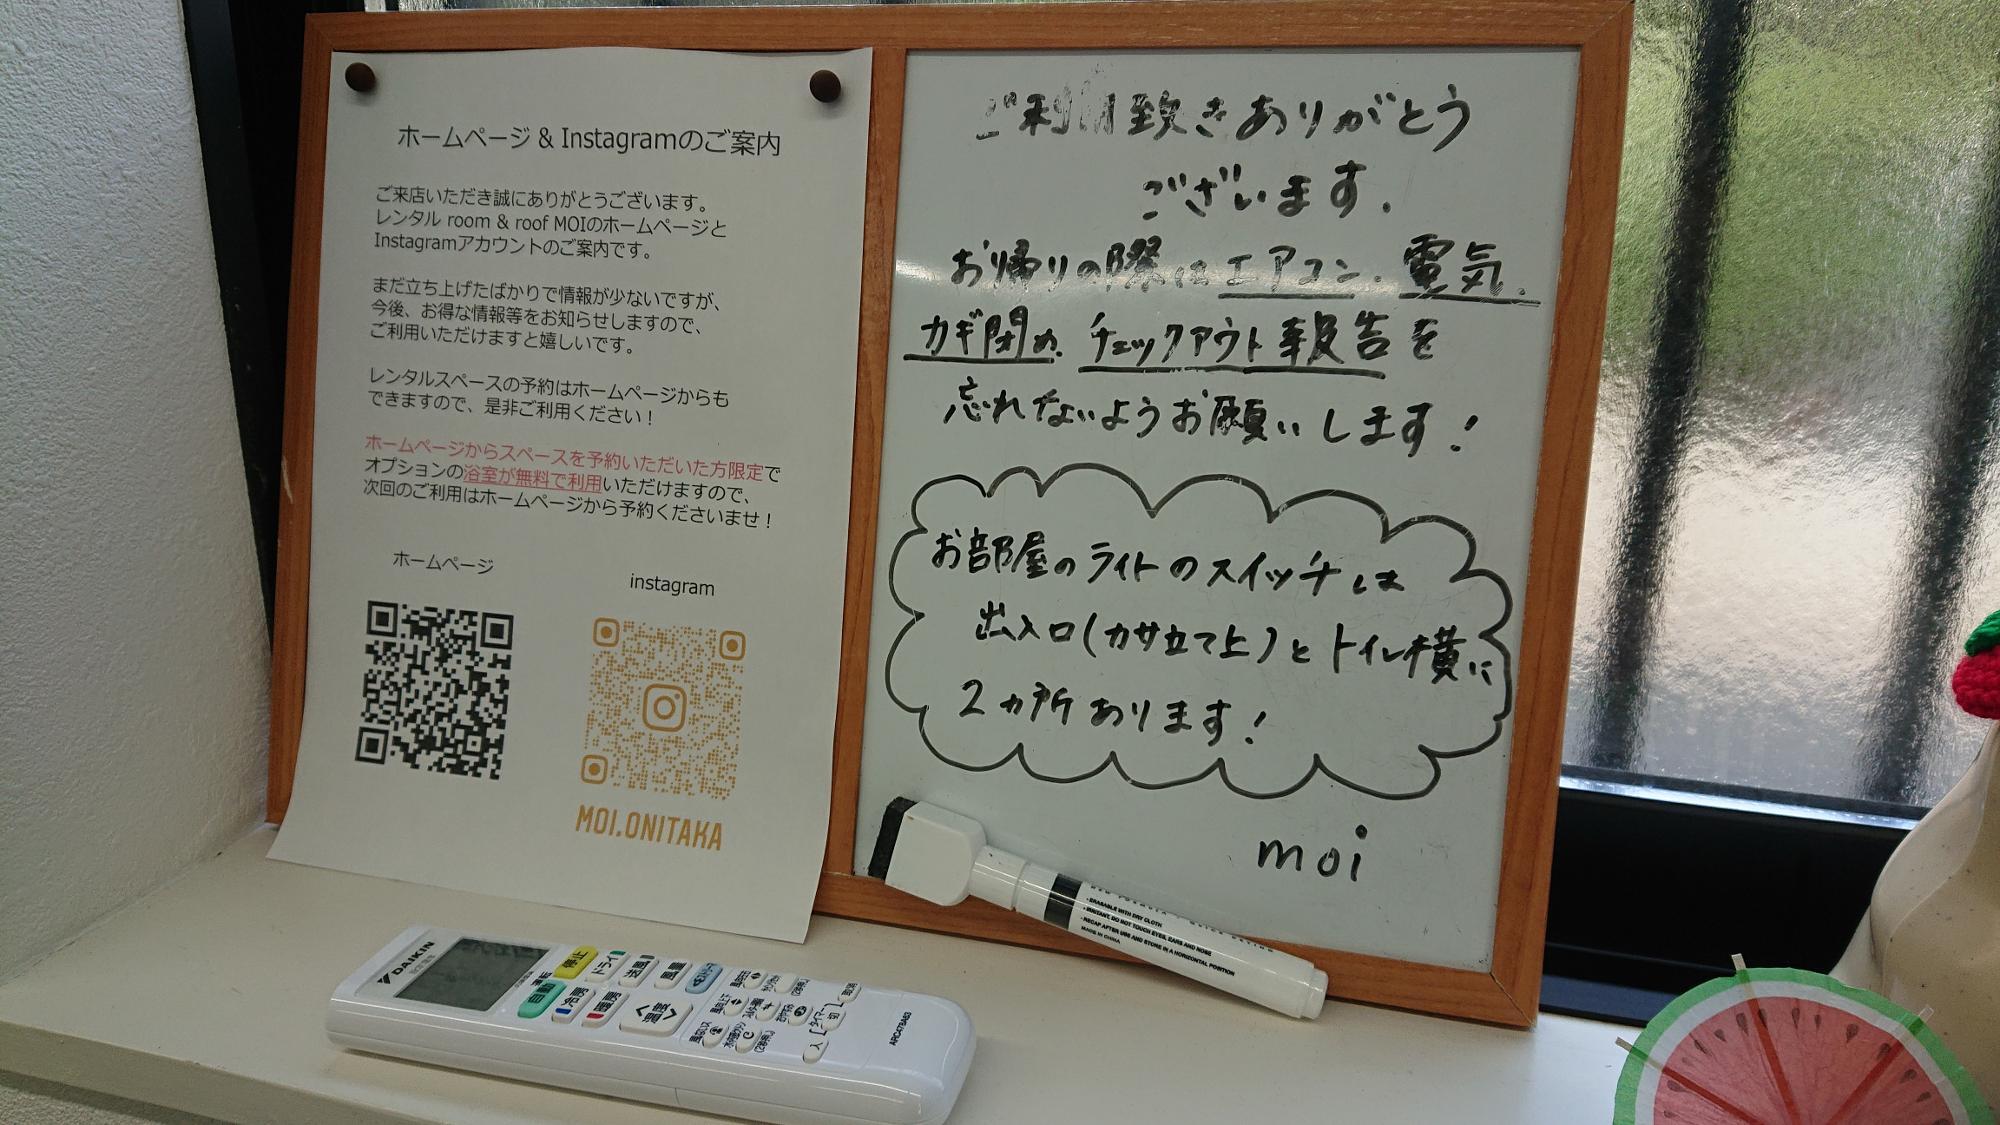 ホームページ & Instagramのご案内
ご来店いただき誠にありがとうございます。
レンタル room & roof MOIのホームページと
Instagramアカウントのご案内です。
まだ立ち上げたばかりで情報が少ないですが、
今後、お得な情報等をお知らせしますので、
ご利用いただけますと嬉しいです。
レンタルスペースの予約はホームページからも
できますので、是非ご利用ください！
ホームページからスペースを予約いただいた方限定で
オプションの浴室が無料で利用いただけますので、
次回のご利用はホームページから予約くださいませ！
ホームページ
instagram
MOI.ONITAKA
ご利用致きありがとう
ございます.
お帰りの際はエアコン.電気.
カギ閉め.チェックアウト報告を
忘れないようお願いします!
お部屋のライトのスイッチは
出入口(カサ立て上)とトイレ横に
2カ所あります!
moi
・ERASABLE WITH DRY CLOTH
・IRRITANT, DO NOT TOUCH EYES, EARS AND NOSE
・RECAP AFTER USE AND STORE IN A HORIZONTAL POSITION
MADE IN CHINA
DAIKIN
停止
ドライ
送風
風量
自動
冷房
暖房
温度
タイマー
入
切
取消
ARC478A63